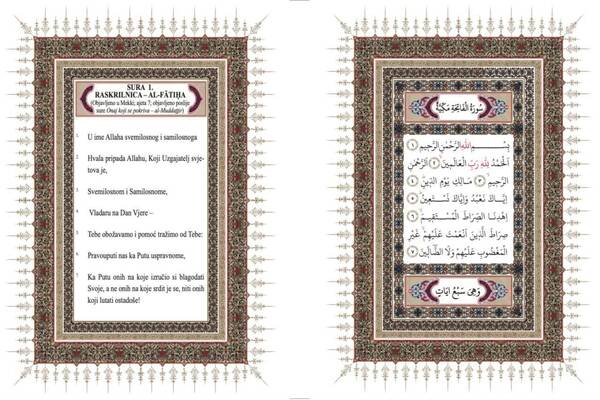 SURA 1.
RASKRILNICA – AL-FĀTIḤA
(Objavljeno u Mekki; ajeta 7; objavljeno poslije
sure Onaj koji se pokriva – al-Muddaṯṯir)
1. U ime Allaha svemilosnog i samilosnoga
2. Hvala pripada Allahu, Koji Uzgajatelj svje-
tova je,
3. Svemilosnom i Samilosnome,
4. Vladaru na Dan Vjere –
5. Tebe obožavamo i pomoć tražimo od Tebe:
6. Pravouputi nas ka Putu uspravnome,
7. Ka Putu onih na koje izručio si blagodati
Svoje, a ne onih na koje srdit je se, niti onih
koji lutati ostadoše!
سُورَةُ الْفَاتِحَةِ مَكِّيَّةٌ
بِسْمِ اللهِ الرَّحْمٰنِ الرَّحِيمِ ﴿١﴾
اَلْحَمْدُ لِلّٰهِ رَبِّ الْعَالَمِينَ ﴿٢﴾ اَلرَّحْمٰنِ
الرَّحِيمِ ﴿٣﴾ مَالِكِ يَوْمِ الدِّينِ ﴿٤﴾
اِيَّاكَ نَعْبُدُ وَاِيَّاكَ نَسْتَعِينُ ﴿٥﴾
اِهْدِنَا الصِّرَاطَ الْمُسْتَقِيمَ ﴿٦﴾
صِرَاطَ الَّذِينَ اَنْعَمْتَ عَلَيْهِمْ غَيْرِ
الْمَغْضُوبِ عَلَيْهِمْ وَلَا الضَّالِّينَ ﴿٧﴾
وَهِيَ سَبْعُ اٰيَاتٍ